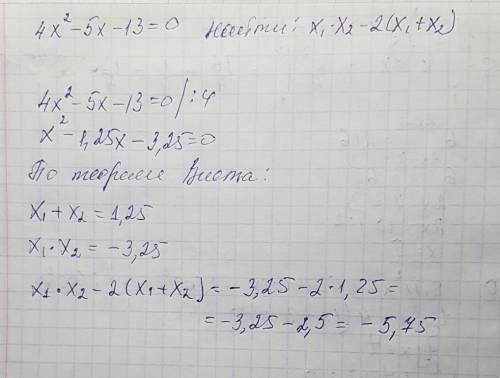 4x² - 5x - 13 = 0 Найти: x₁ · x₂ - 2(x₁ + x₂)
4x² - 5x - 13 = 0 | : 4
x² - 1,25x - 3,25 = 0
По теореме Виета:
x₁ + x₂ = 1,25
x₁ · x₂ = -3,25
x₁ · x₂ - 2(x₁ + x₂) = -3,25 - 2 · 1,25 =
= -3,25 - 2,5 = -5,75